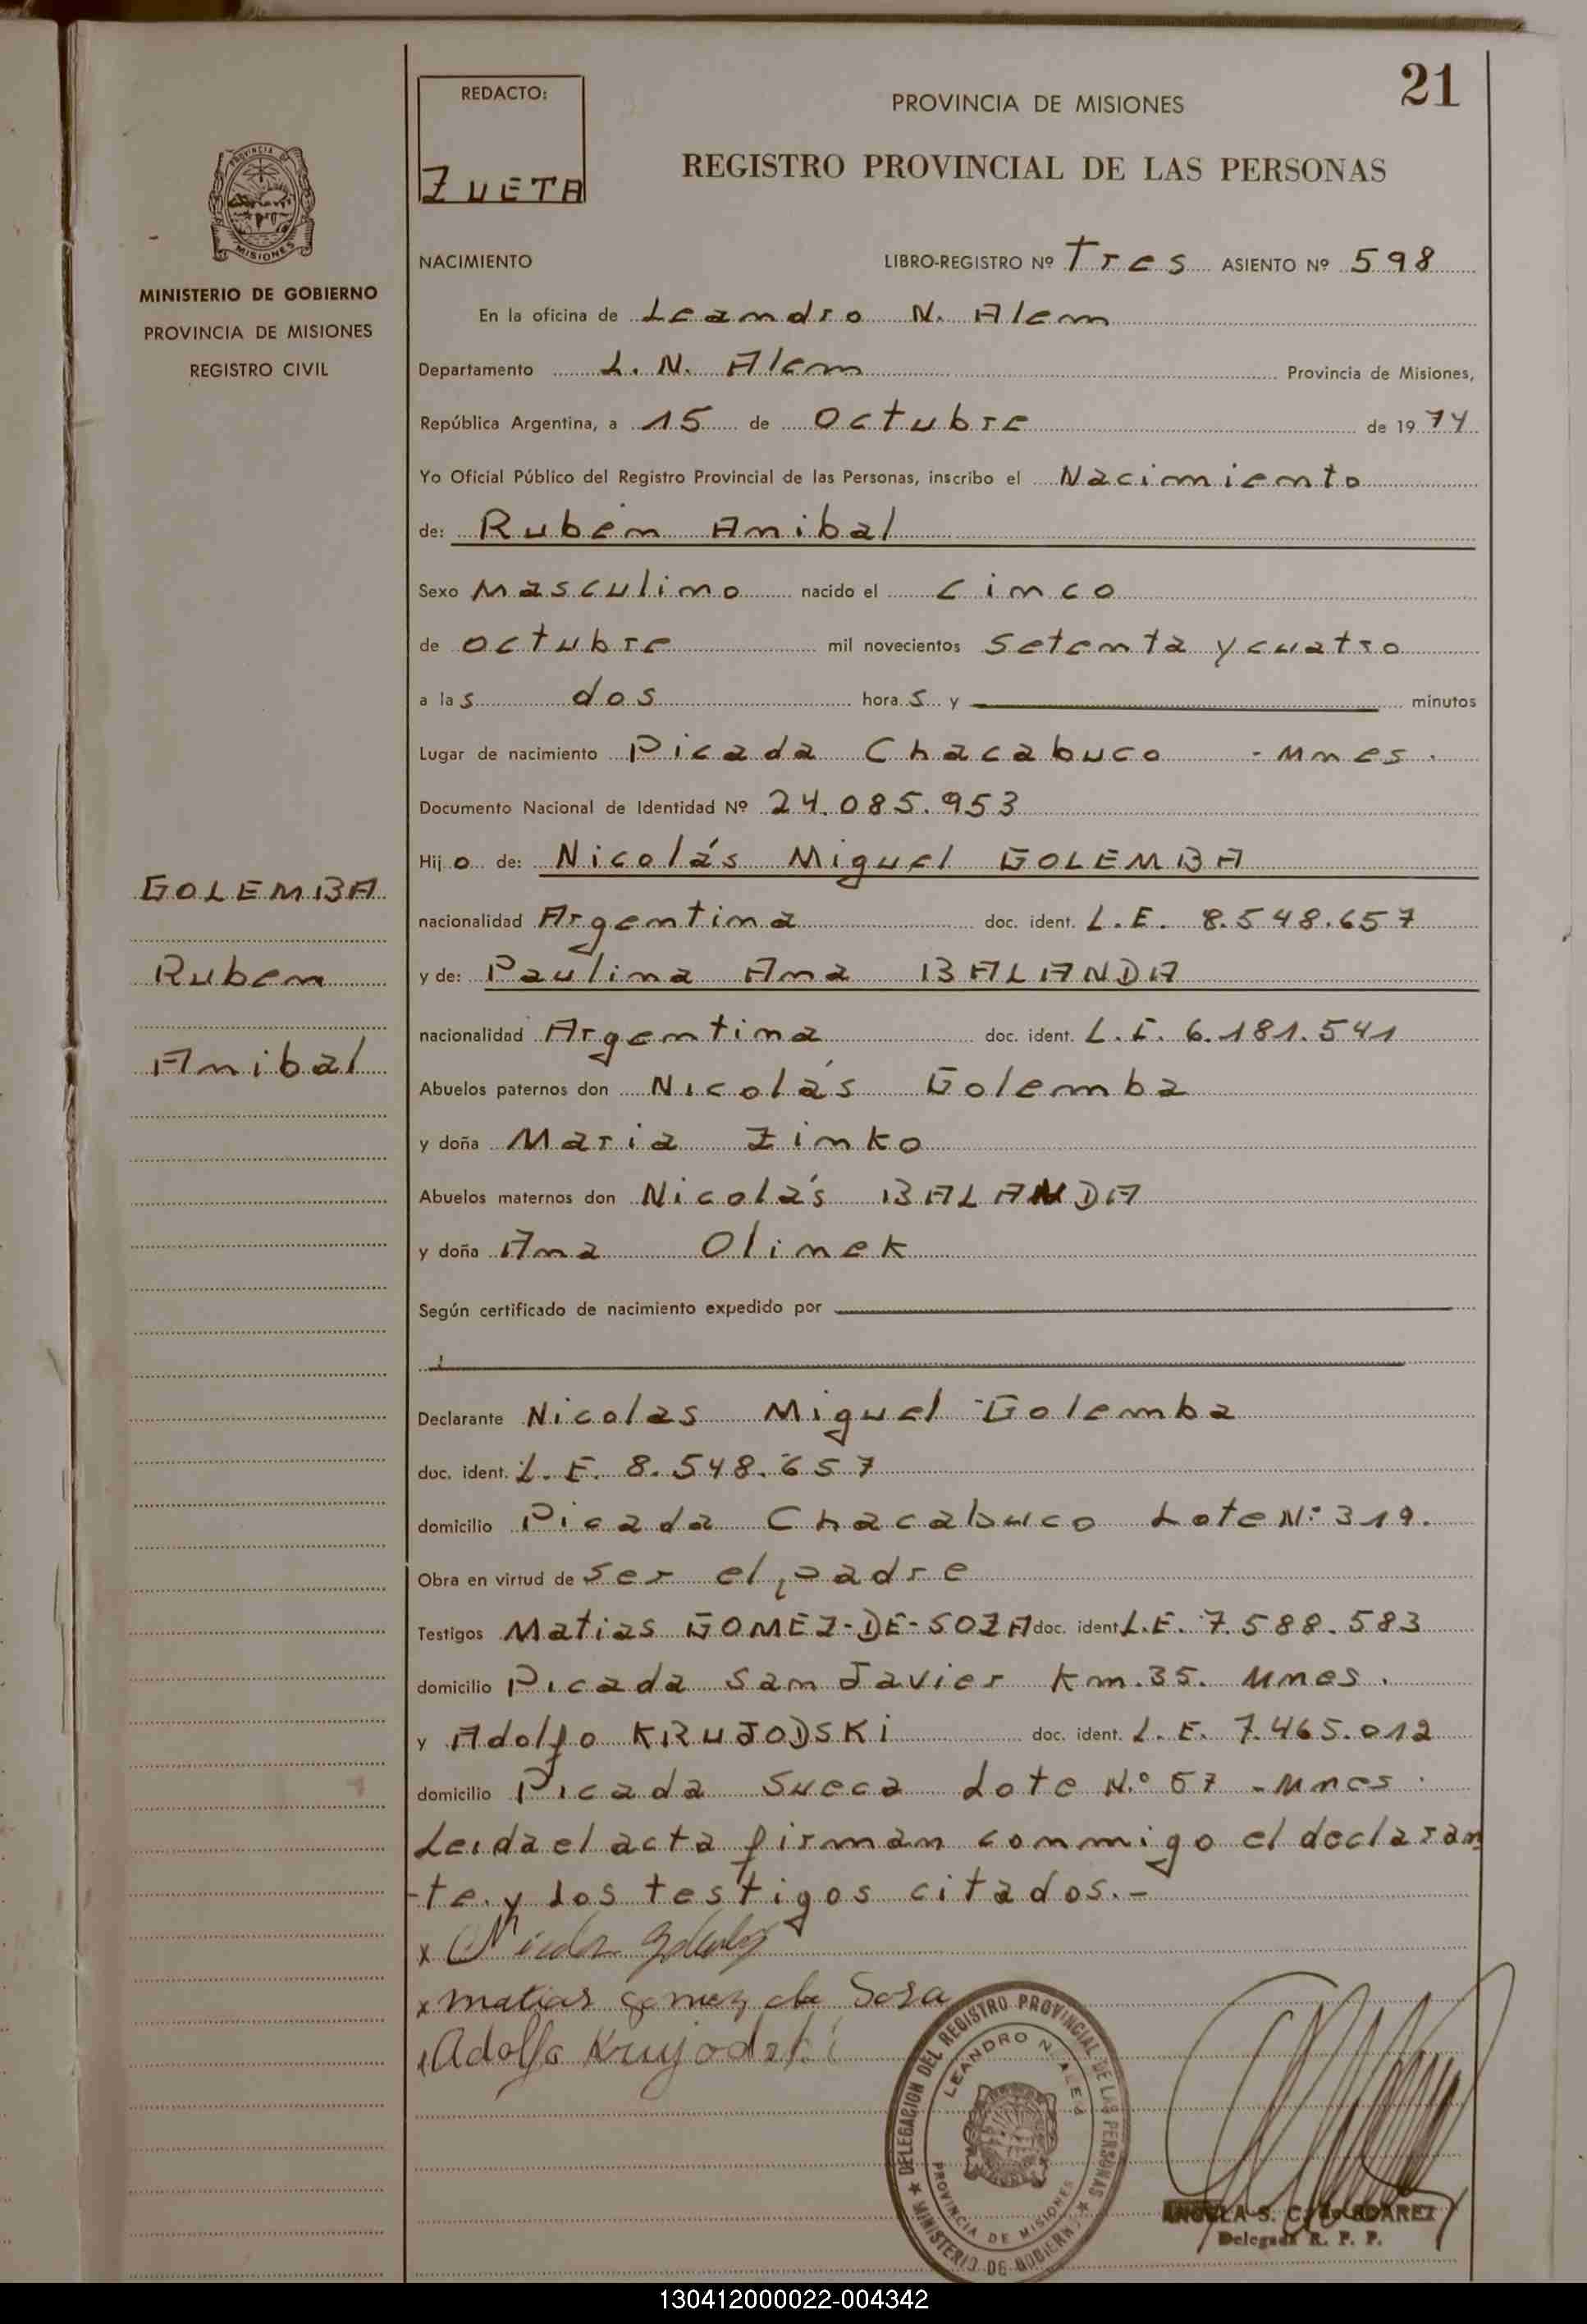 21
REDACTO:
ZUETA
PROVINCIA DE MISIONES
REGISTRO PROVINCIAL DE LAS PERSONAS
PROVINCIA DE
MISIONES
MINISTERIO DE GOBIERNO
PROVINCIA DE MISIONES
REGISTRO CIVIL
NACIMIENTO LIBRO-REGISTRO Nº Tres ASIENTO Nº 598
En la oficina de Leandro N. Alem
Departamento L. N. Alem Provincia de Misiones,
República Argentina, a 15 de Octubre de 1974
Yo Oficial Público del Registro Provincial de las Personas, inscribo el Nacimiento
de: Rubén Anibal
Sexo Masculino nacido el Cinco
de octubre mil novecientos Setenta y cuatro
a las dos horas y minutos
Lugar de nacimiento Picada Chacabuco - Mnes.
Documento Nacional de Identidad Nº 24.085.953
Hijo de: Nicolás Miguel GOLEMBA
nacionalidad Argentina doc. ident. L.E. 8.548.657
y de: Paulina Ana BALANDA
nacionalidad Argentina doc. ident. L.E. 6.181.541
Abuelos paternos don Nicolás Golemba
y doña Maria Zinko
Abuelos maternos don Nicolás BALANDA
y doña Ana Olinek
Según certificado de nacimiento expedido por
Declarante Nicolas Miguel Golemba
doc. ident. L.E. 8.548.657
domicilio Picada Chacabuco Lote Nº 319.
Obra en virtud de Ser el padre
Testigos Matias GOMEZ-DE-SOZA doc. ident L.E. 7.588.583
domicilio Picada San Javier Km.35. Mnes.
y Adolfo KRUJODSKI doc. ident. L.E. 7.465.012
domicilio Picada Sueca Lote N.º 57 - Mnes.
Leida el acta firman conmigo el declaran
-te y los testigos citados.-
GOLEMBA
Ruben
Anibal
x matias gomez de Soza
x Adolfo Krujodski
DELEGACION DEL REGISTRO PROVINCIAL DE LAS PERSONAS
MINISTERIO DE GOBIERNO
LEANDRO N. ALEM
PROVINCIA DE MISIONES
ANGELA S. C. de SUAREZ
Delegada R. P. P.
130412000022-004342